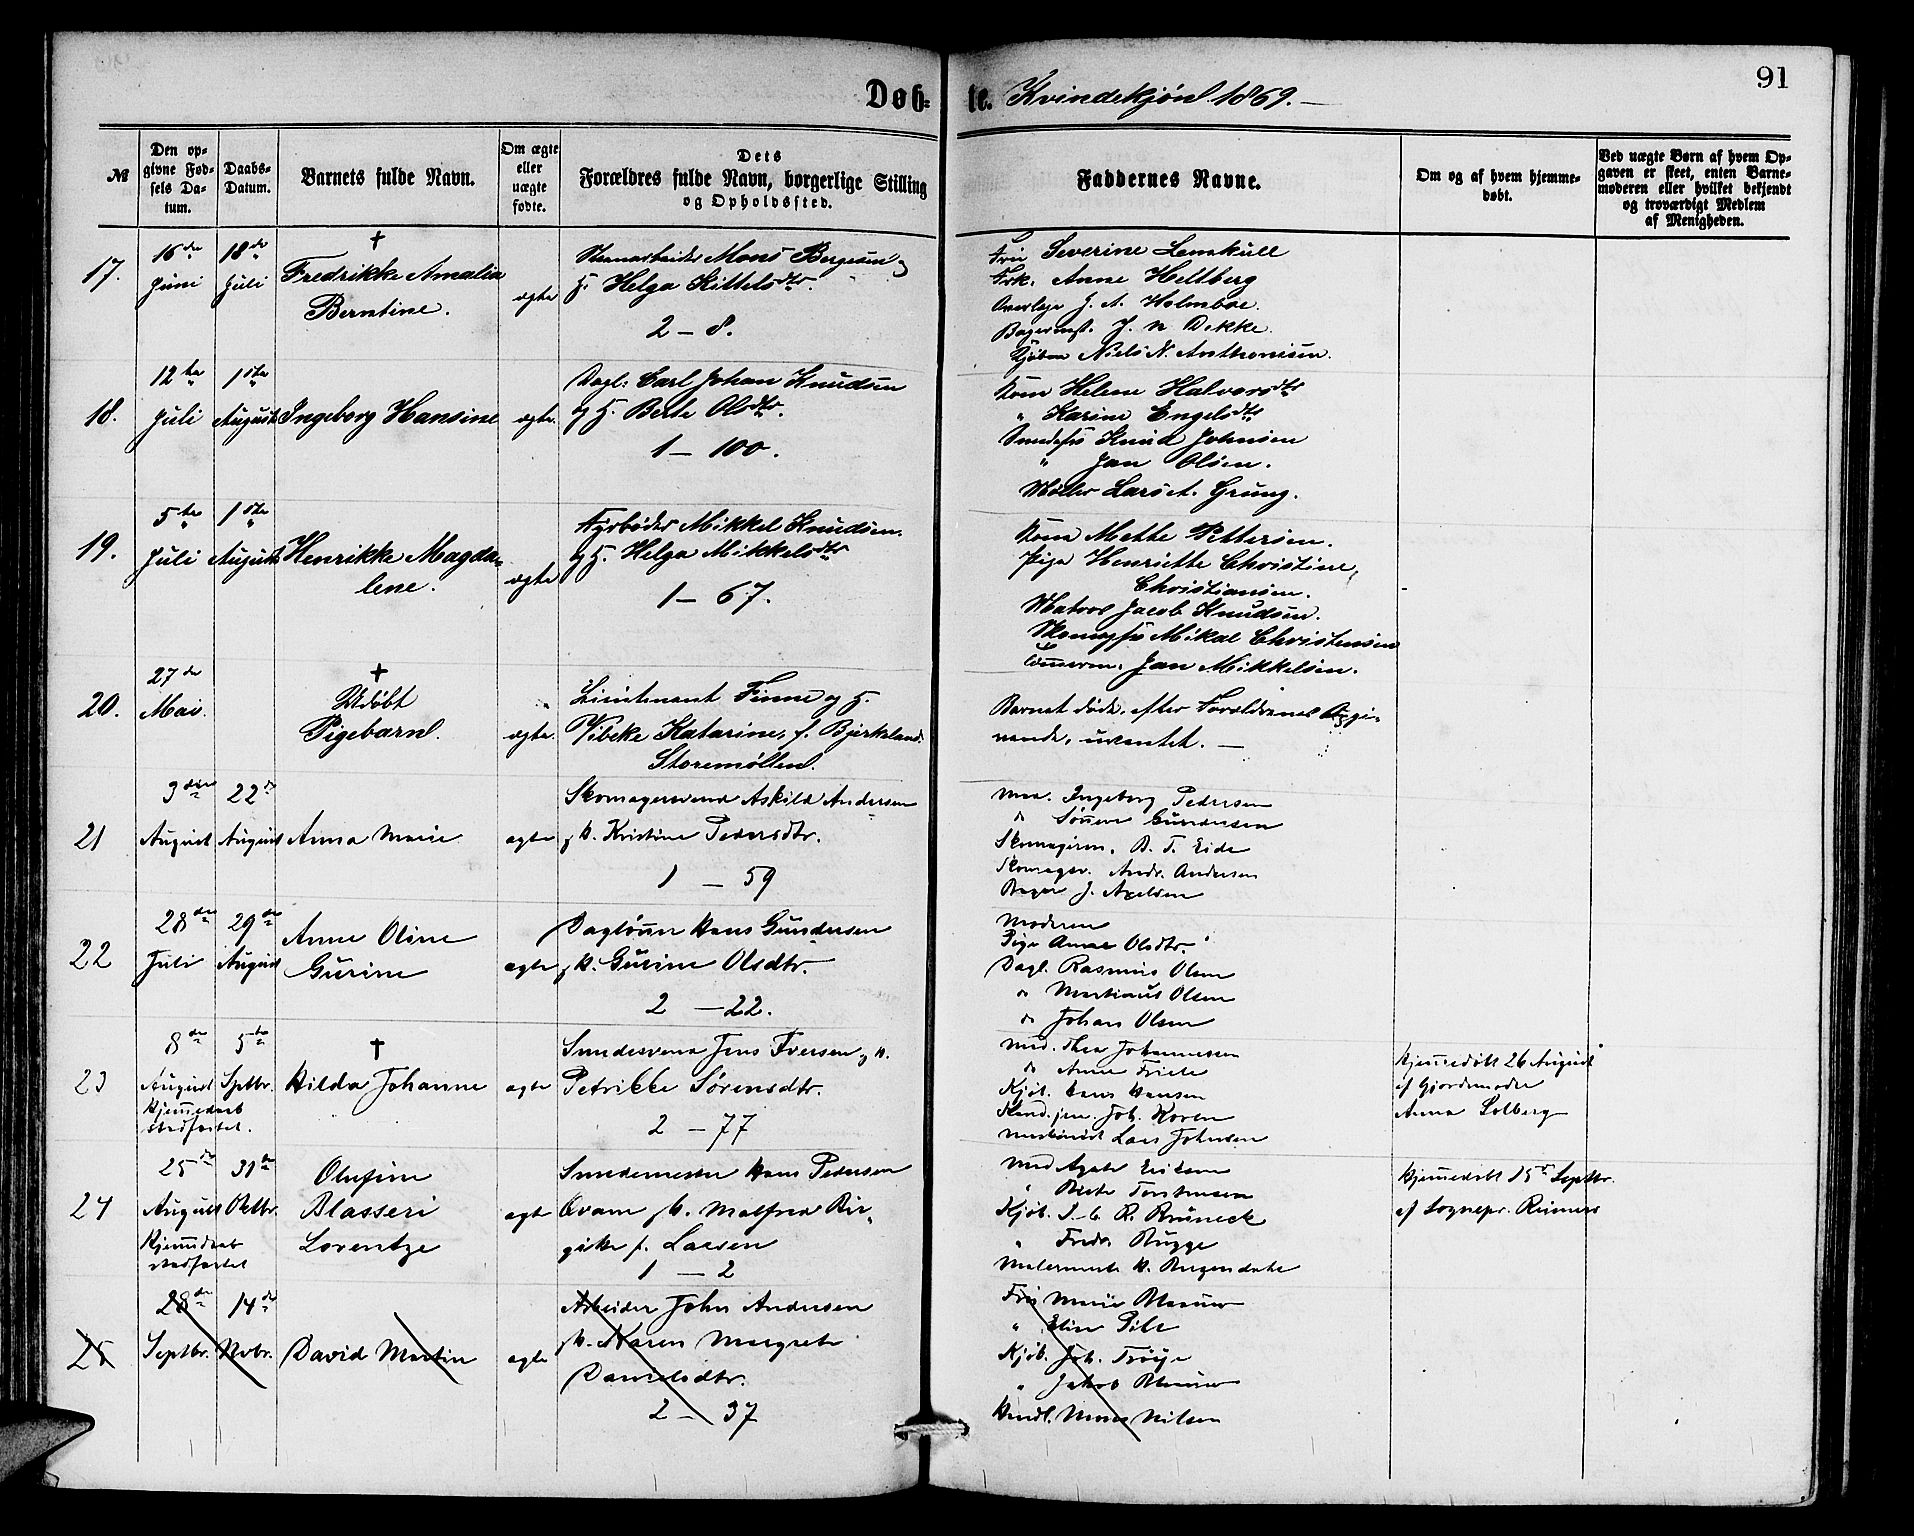 Døb-
te. Kvindekjøn 1869.
91
№
Den op-
givne Fød-
sels Da-
tum.
Daabs-
Datum.
Barnets fulde Navn.
Om ægte
eller
uægte
fødte.
Dets
Forældres fulde Navn, borgerlige Stilling
og Opholdssted.
Faddernes Navne.
Om og af hvem hjemme-
døbt.
Ved uægte Børn af hvem Op-
gaven er skeet, enten Barne-
moderen eller hvilket bekjendt
og troværdigt Medlem
af Menigheden.
17.
16de
Juni
18de
Juli
†
Fredrikke Amalia
Berntine.
ægte
Mons Børgesen
H. Helga Kittelsdtr.
2 - 8.
Fru Severine
Frk. Anne Heltberg
J. A. Holmboe.
J. N. Dekke.
Niels N. Anthonisen.
18.
12te
Juli
1ste
August
Ingeborg Hansine
ægte.
Dagl: Carl Johan Knudsen
og H. Berte Olsdtr.
1 - 100.
Kone Helene Halvorsdtr
" Karine Engelsdtr
Knud Johnsen
" Jan Olsen.
Møller Lars A. Grung.
19.
5te
Juli
1ste
August
Henrikke Magda-
lene.
ægte
Fyrbøder Mikkel Knudsen.
og H. Helga Mikkelsdtr
1 - 67.
Kone Mette Pettersen.
Pige Henriette Christine,
Christiansen.
Matros Jacob Knudsen.
Mikal Christensen
Jan Mikkelsen.
20.
27de
Mai.
†
Udøbt
Pigebarn.
ægte.
Lieutenant Finne og H.
Vibeke Katarine, f. Bjerkeland.
Storemøllen.
Barnet døde, efter Forældrenes Angi-
vende, uventet.
21
3die
August
22de
August
Anna Marie
ægte
Skomagersvend Askild Andersen
og H. Kristine Pedersdtr.
1 - 59
Mad. Ingeborg Pedersen
do Gundersen
B. T. Eide
Skomager. Andr. Andersen
Bager J. Axelsen
22
28de
Juli
29de
August
Anne Oline
Gurine
ægte
Dagløner Hans Gundersen
og H. Gurine Olsdtr.
2 - 22.
Moderen
Pige Anna Olsdtr.
Dagl. Rasmus Olsen
do Martinus Olsen
do Johan Olsen
23
8de
August
Hjemmedaab
stadfæstet.
5te
Sptbr.
†
Hilda Johanne
ægte
Smedesvend Jens Iversen og H.
Petrikke Sørensdtr.
2 - 77
Mad. Thea Johannessen
do Anne Friele
Kjøb. Hans Hansen
Joh. Koren
Lars Johnsen
Hjemmedøbt 26 August
af Gjordemoder
Anna Solberg
24
25de
August
Hjemmedaab
stadfæstet
31te
Oktbr.
Olufine
Blasseri
Lorentze
ægte
Smedemester Hans Pedersen
Kvam og H. Malfred Bir-
gitte f. Larsen
1 - 2
Mad Agate Eriksen
" Birte Torstensen
Kjøb. R. Bruneck
" Fredr. Bugge
Hjemmedøbt 15de Septbr.
af Sognepr. Reimers
25
28de
Septbr.
14de
Novbr.
David Martin
ægte
Arbeider John Andersen
og H. Karen Margrete
Danielsdtr.
2 - 37
Fru Marie
" Elin
Kjøb. Joh. Trøye
" Jakob
Handl. Mons Nilsen